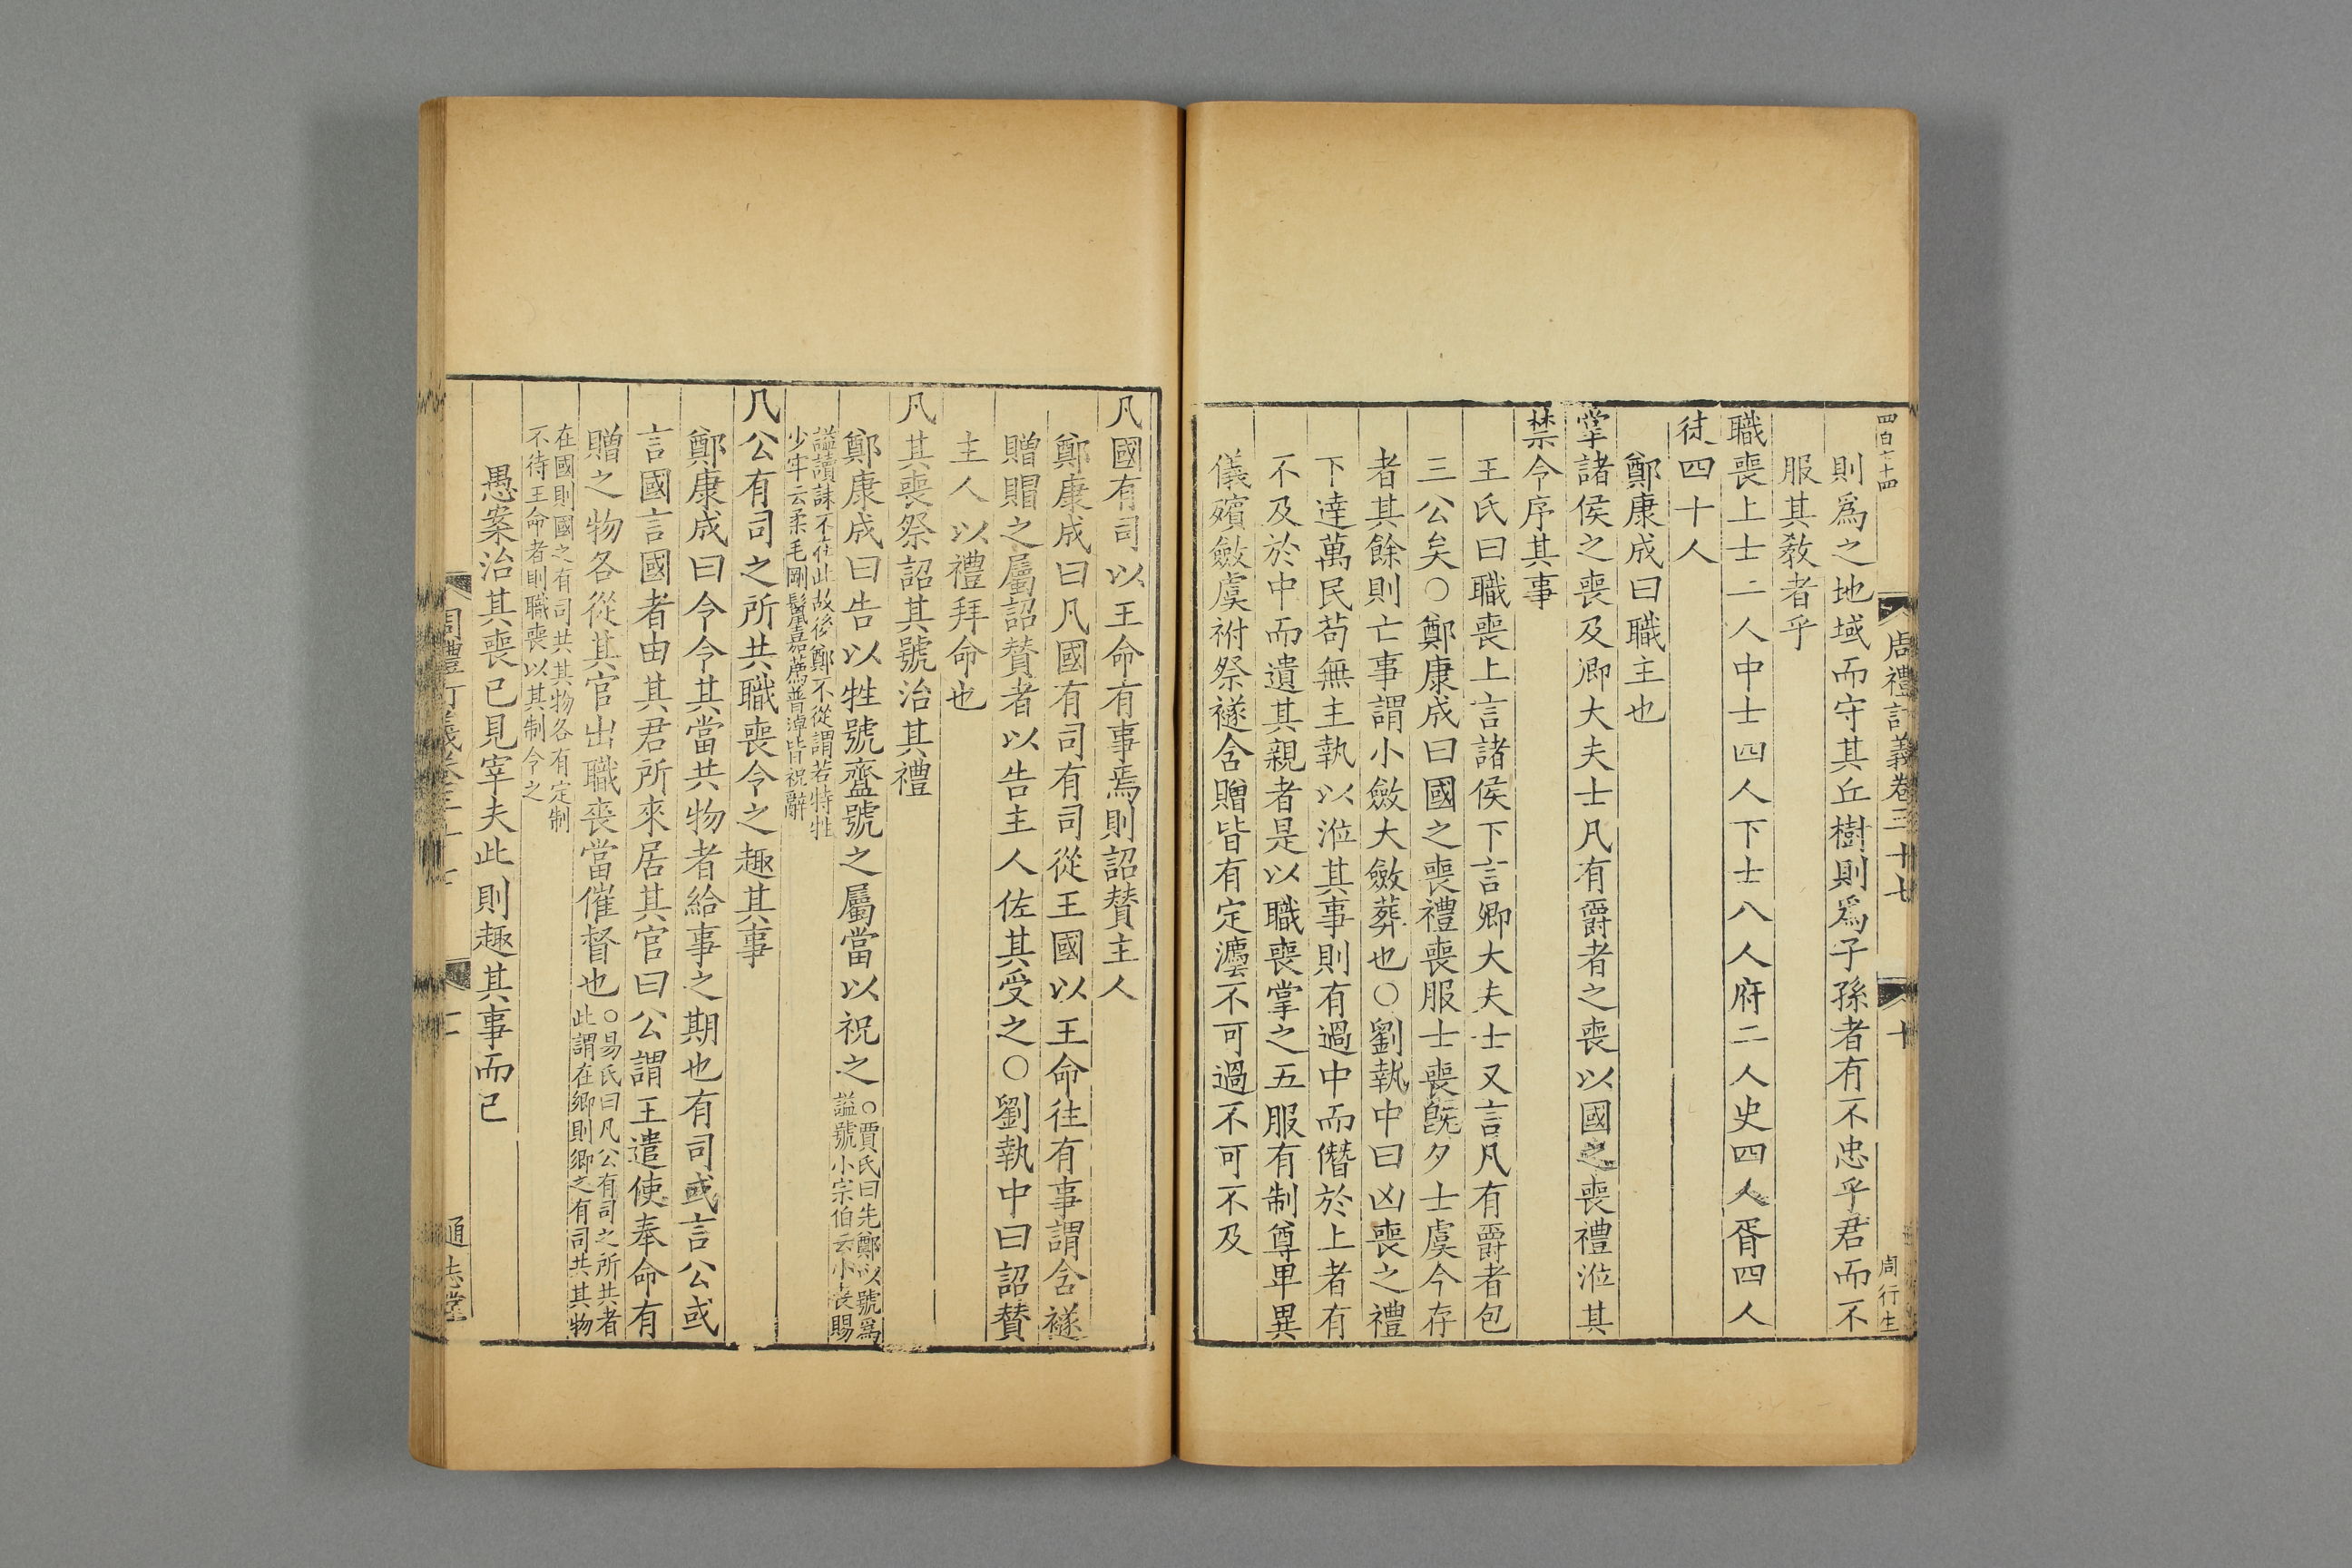 四百七十四
周禮訂義卷三十七
十
周行生
則爲之地域而守其丘樹則爲子孫者有不忠乎君而不
服其敎者乎
職喪上士二人中士四人下士八人府二人史四人胥四人
徒四十人
鄭康成曰職主也
掌諸侯之喪及卿大夫士凡有爵者之喪以國之喪禮涖其
禁令序其事
王氏曰職喪上言諸侯下言卿大夫士又言凡有爵者包
三公矣○鄭康成曰國之喪禮喪服士喪旣夕士虞今存
者其餘則亡事謂小斂大斂葬也○劉執中曰凶喪之禮
下達萬民苟無主執以涖其事則有過中而僭於上者有
不及於中而遺其親者是以職喪掌之五服有制尊卑異
儀殯斂虞祔祭襚含贈皆有定灋不可過不可不及
凡國有司以王命有事焉則詔贊主人
鄭康成曰凡國有司有司從王國以王命往有事謂含襚
贈賵之屬詔贊者以告主人佐其受之○劉執中曰詔贊
主人以禮拜命也
凡其喪祭詔其號治其禮
鄭康成曰告以牲號齍號之屬當以祝之
○賈氏曰先鄭以號爲
諡號小宗伯云小喪賜
諡讀誄不在此故後鄭不從謂若特牲
少牢云柔毛剛鬣嘉薦普淖皆祝辭
凡公有司之所共職喪令之趣其事
鄭康成曰令令其當共物者給事之期也有司或言公或
言國言國者由其君所來居其官曰公謂王遣使奉命有
贈之物各從其官出職喪當催督也
○易氏曰凡公有司之所共者
此謂在鄉則鄉之有司共其物
在國則國之有司共其物各有定制
不待王命者則職喪以其制令之
愚案治其喪已見宰夫此則趣其事而已
周禮訂義卷三十七
通志堂